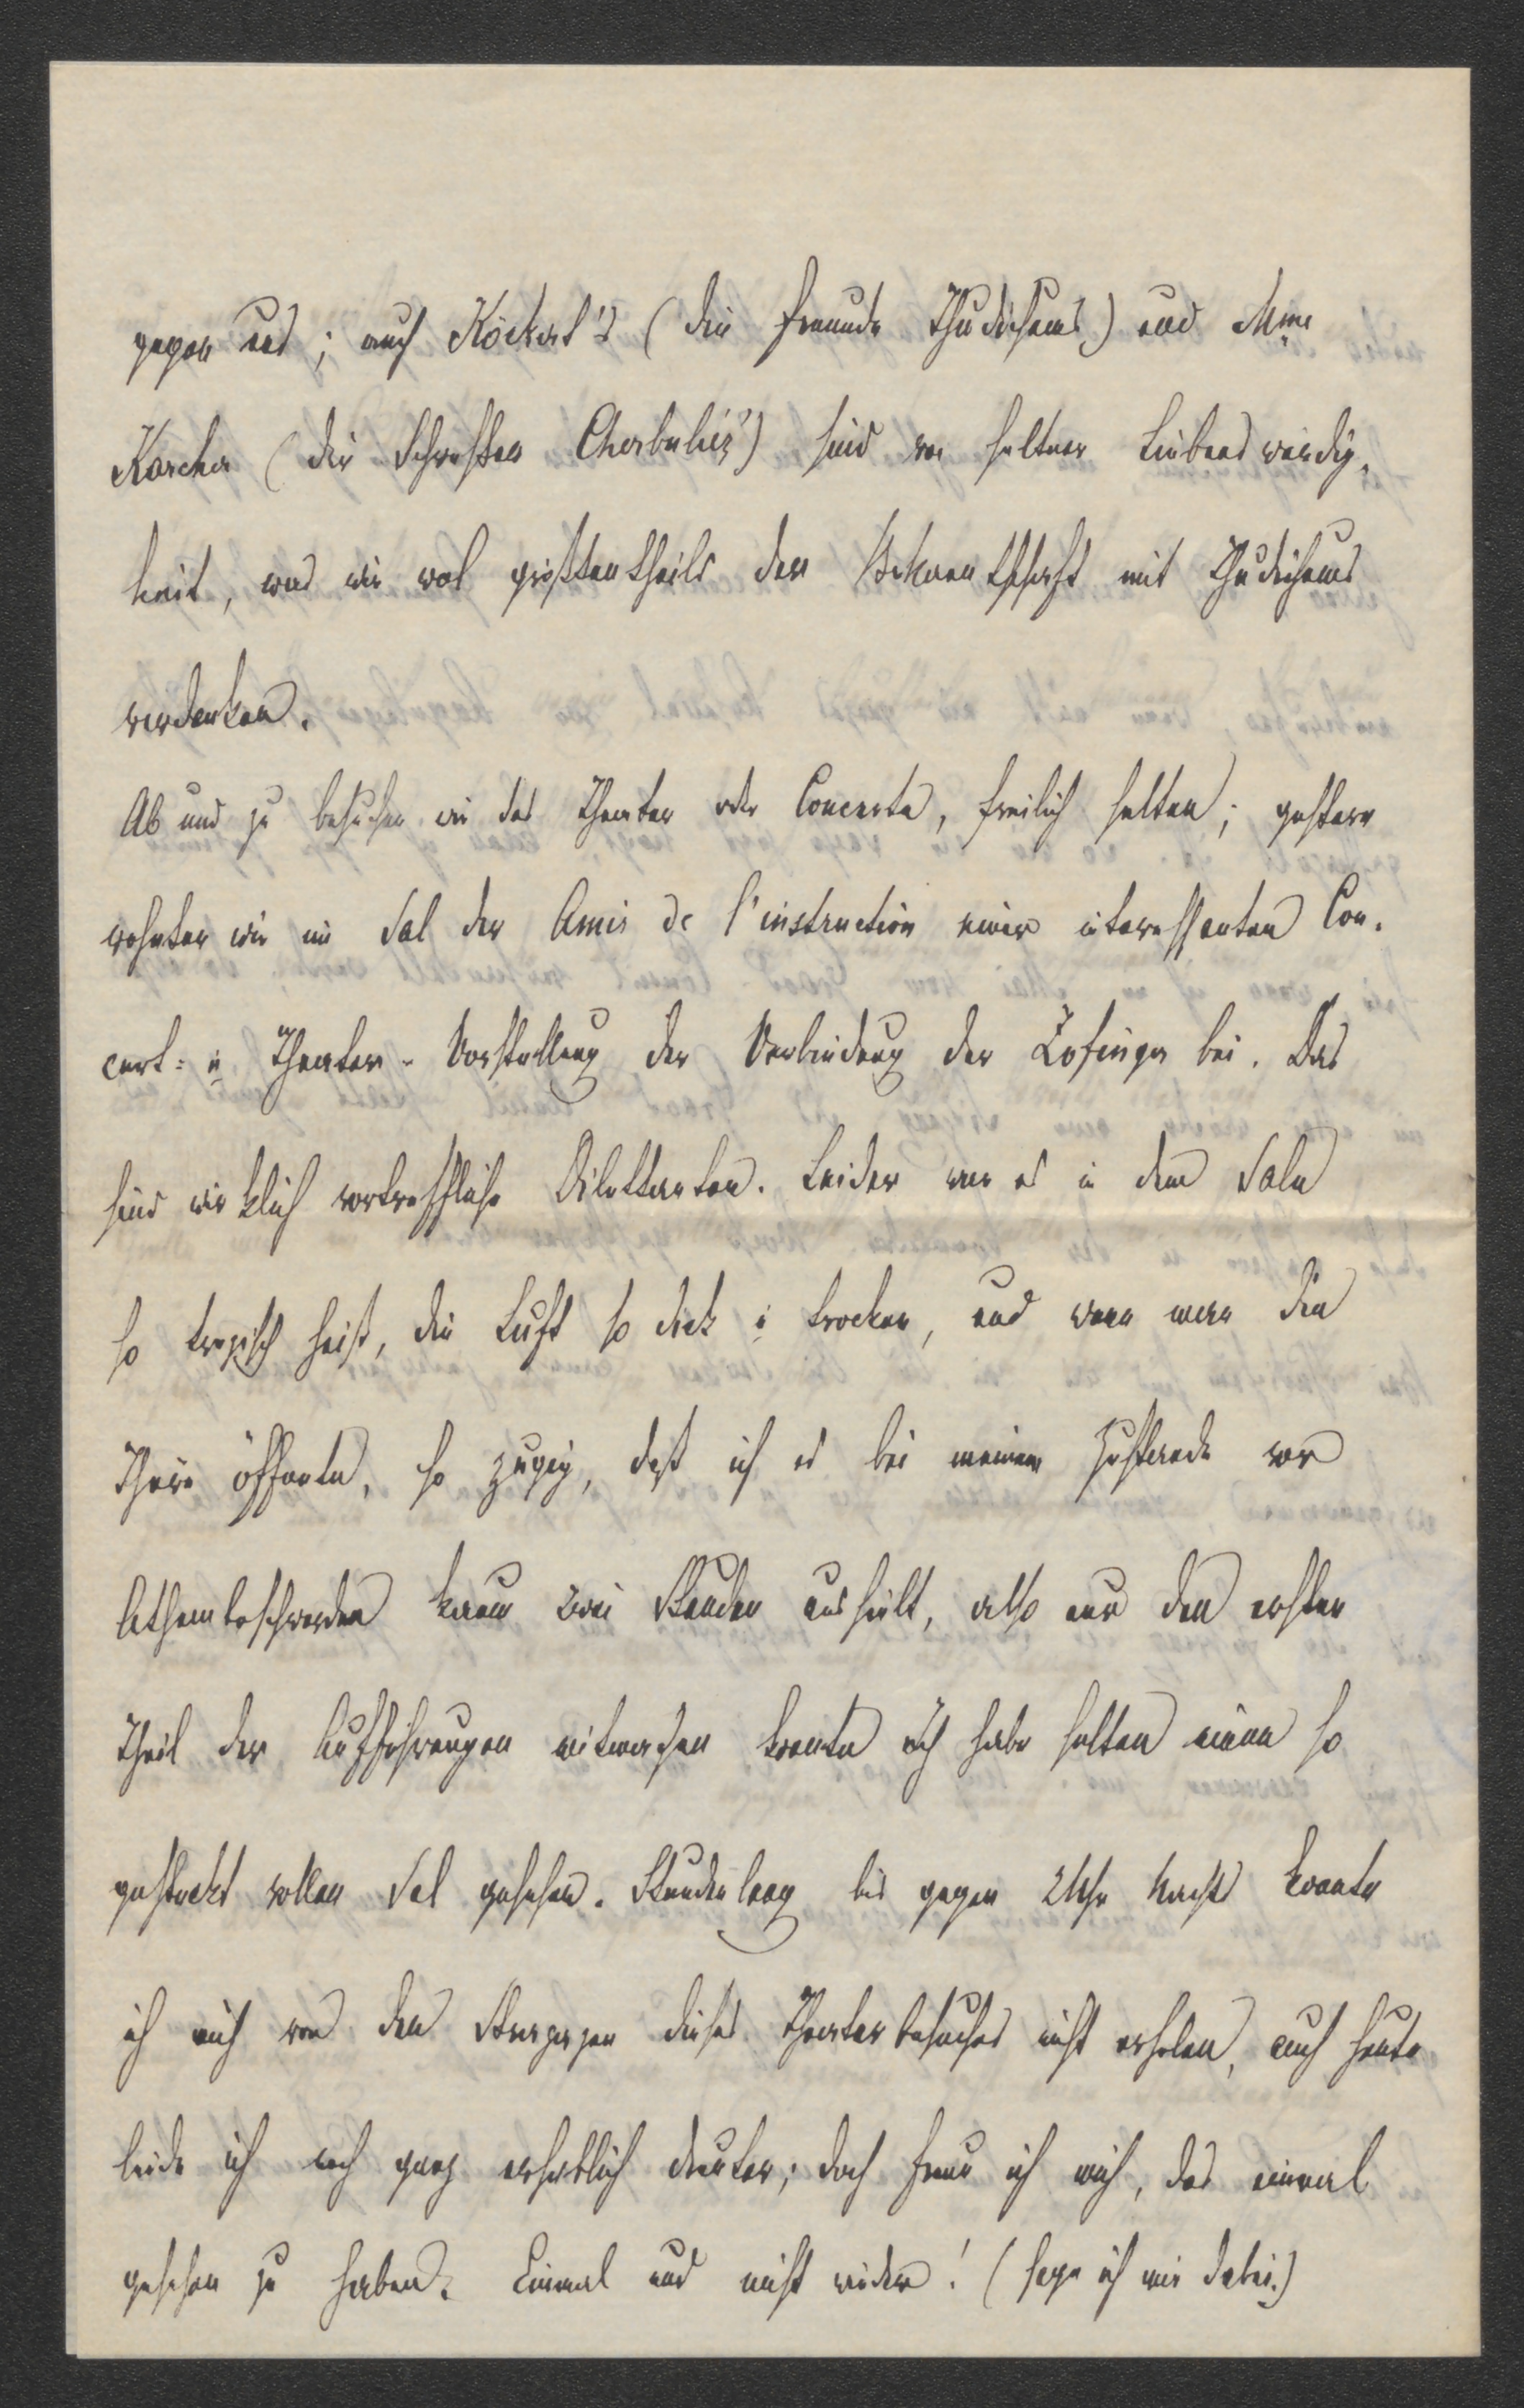 gegen uns; auch Köckert's (die Freunde Thudichums) und Mme
Karcher (die Schwester Cherbuliéz') sind von seltner Liebenswürdig-
keit, was wir wol größtentheils der Bekanntschaft mit Thudichums
verdanken.
Ab und zu besuchen wir das Theater oder Concerte, freilich selten; gestern
wohnten wir im Sal der Amis de l'instruction einer interessanten Con-
cert- u Theater-Vorstellung der Verbindung der Zofinger bei. Das
sind wirklich vortreffliche Dilettanten. Leider war es in dem Sale
so tropisch heiß, die Luft so dick u trocken, und wenn man die
Thüre öffnete, so zugig, daß ich es bei meinem Zustande von
Athembeschwerden kaum zwei Stunden aushielt, also nur den ersten
Theil der Aufführungen mitmachen konnte Ich habe selten einen so
gesteckt vollen Sal gesehen. Stundenlang bis gegen 2 Uhr Nachts konnte
ich mich von den Strapazen dieses Theaterbesuches nicht erholen, auch heute
leide ich noch ganz erheblich darunter; doch freue ich mich, das einmal
gesehen zu haben. Einmal und nicht wieder! (sage ich mir dabei.)